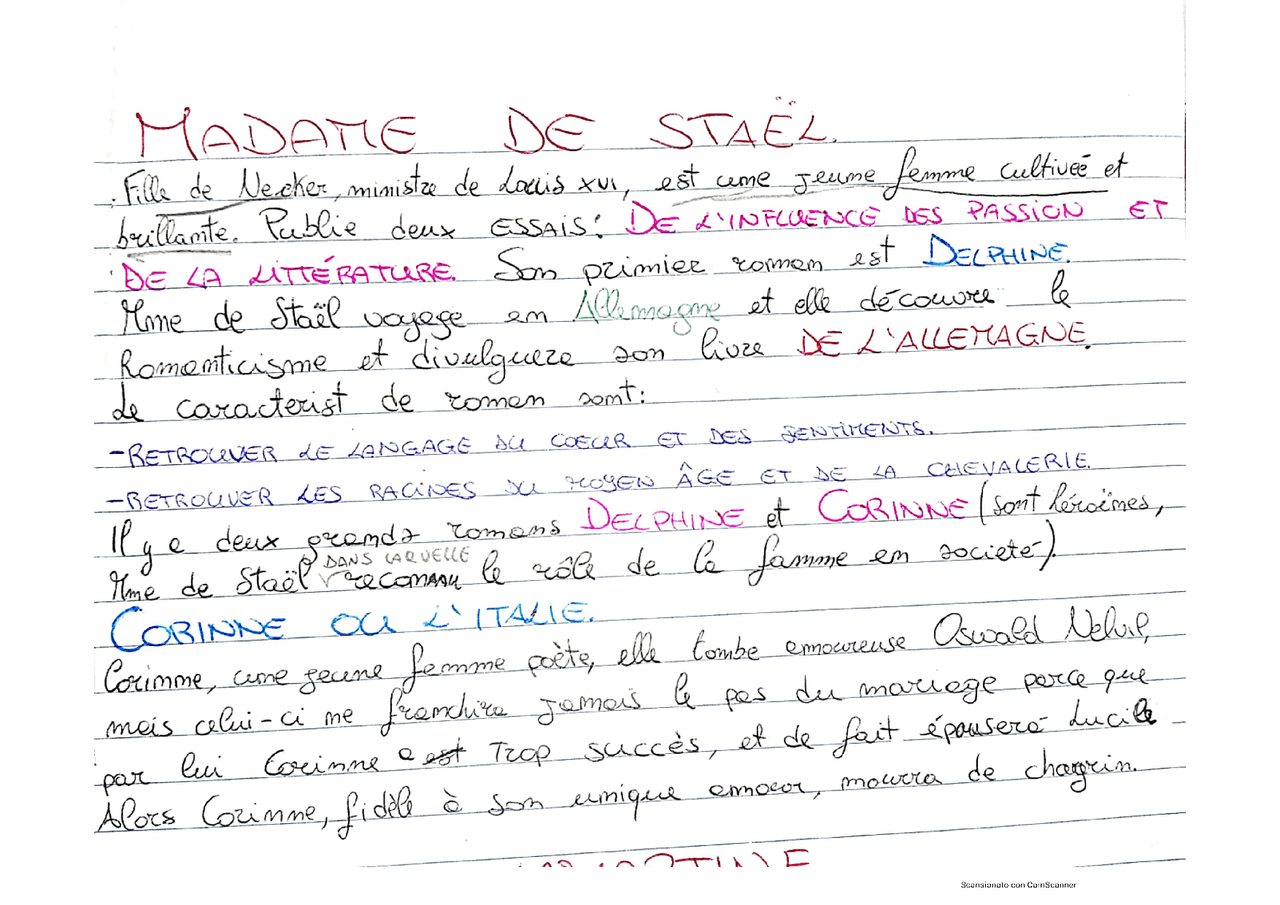 MADAME DE STAËL.
. Fille de Necker, ministre de Louis XVI, est une jeune femme cultiveé et
brillante. Publie deux ESSAIS: DE L'INFLUENCE DES PASSION ET
DE LA LITTÉRATURE. Son primier roman est DELPHINE.
Mme de Staël voyage en Allemagne et elle découvre le
Romanticisme et divulguera son livre DE L'ALLEMAGNE.
Le caracterist de roman sont:
-RETROUVER LE LANGAGE DU COEUR ET DES SENTIMENTS.
-RETROUVER LES RACINES DU MOYEN ÂGE ET DE LA CHEVALERIE.
Il y a deux grands romans DELPHINE et CORINNE (sont léroïnes,
DANS LAQUELLE
Mme de Staël reconnu le rôle de la famme en societé).
CORINNE OU L'ITALIE.
Corinne, une jeune femme poète, elle tombe amoureuse Oswald Nelvil,
mais celui-ci ne franchira jamais le pas du mariage parce que
par lui Corinne a est TROP succès, et de fait épousera Lucile
Alors Corinne, fidèle à son unique amour, mourra de chagrin.
Scansionato con CamScanner